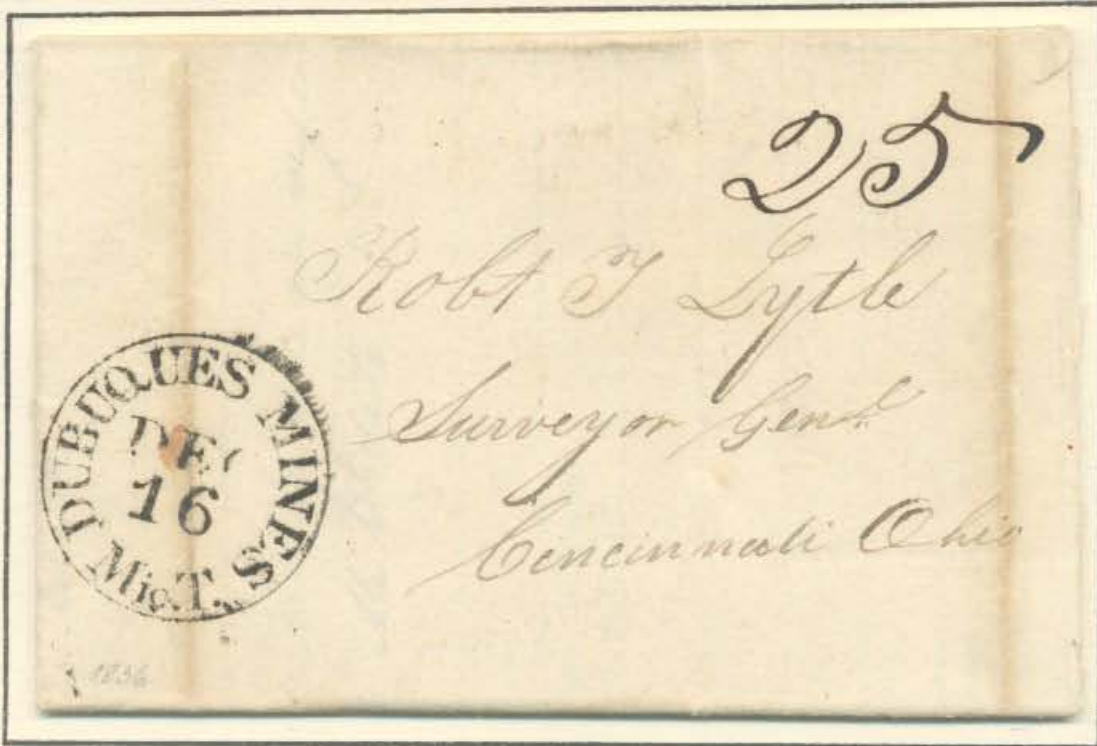 25
Robt T Lytle
Surveyor Genl
Cincinnati Ohio
DUBUQUES MINES
DEC
16
Mic. T.
1836